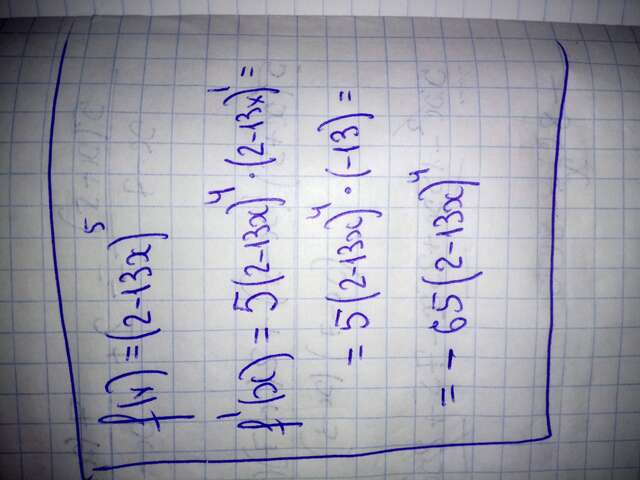 f(x) = (2-13x)⁵
f'(x) = 5(2-13x)⁴ · (2-13x)' =
= 5(2-13x)⁴ · (-13) =
= -65(2-13x)⁴